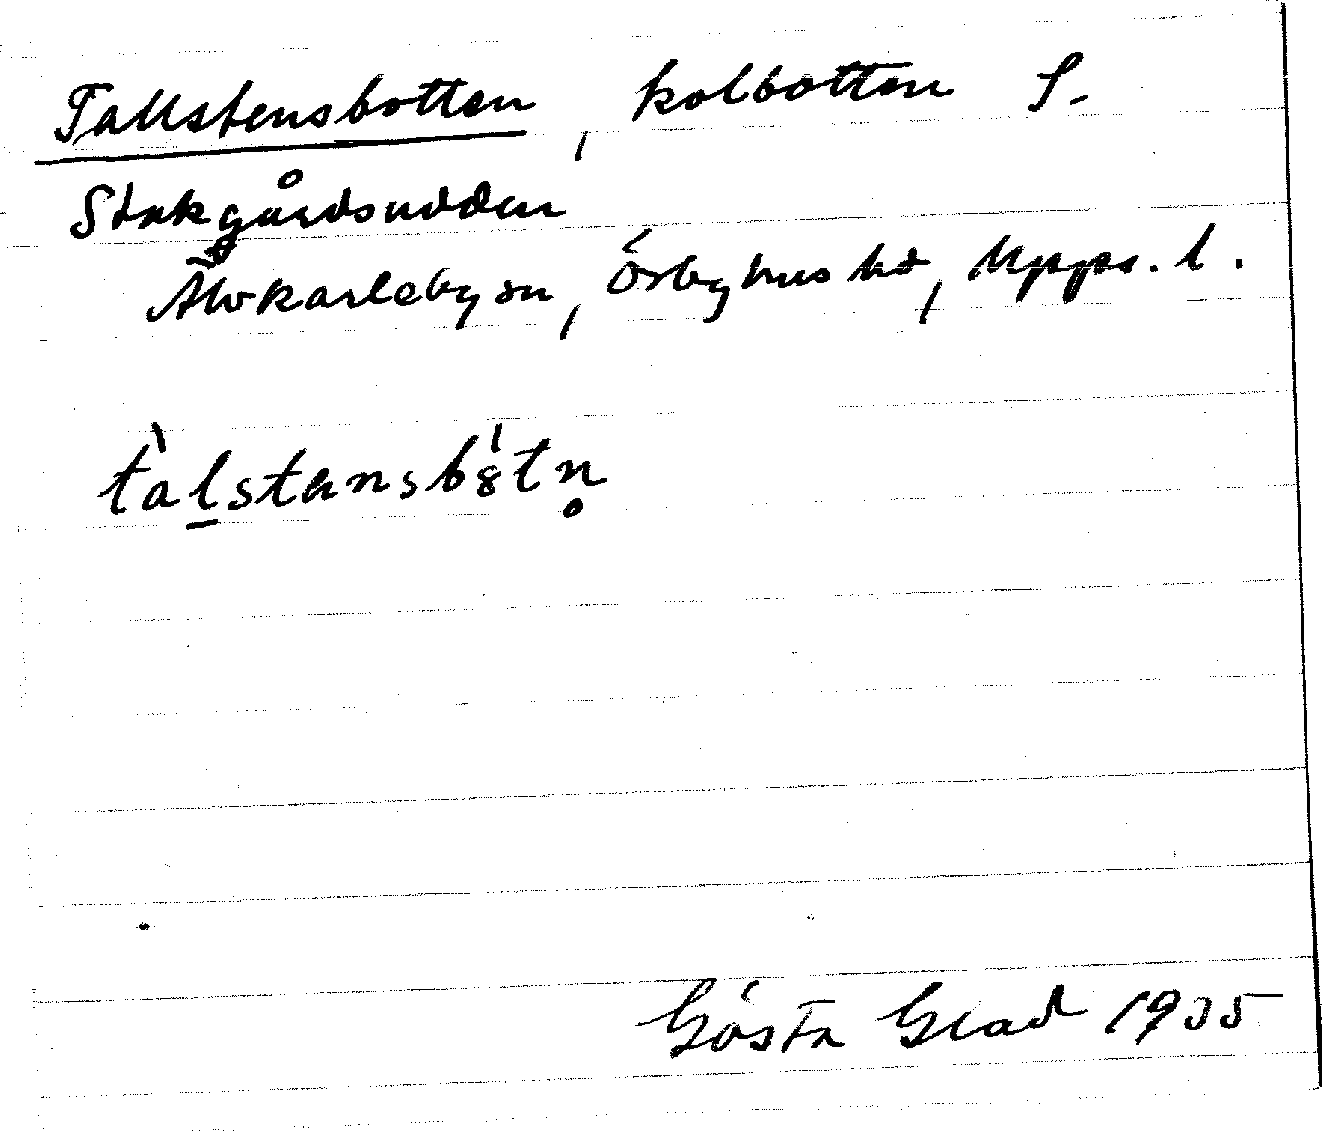 Tallstensbotten, kolbotten S.
Stakgårdsudden
Älvkarleby sn, Örbyhus hd, Upps. l.
tàlstensbòtn̥
Gösta Glad 1935